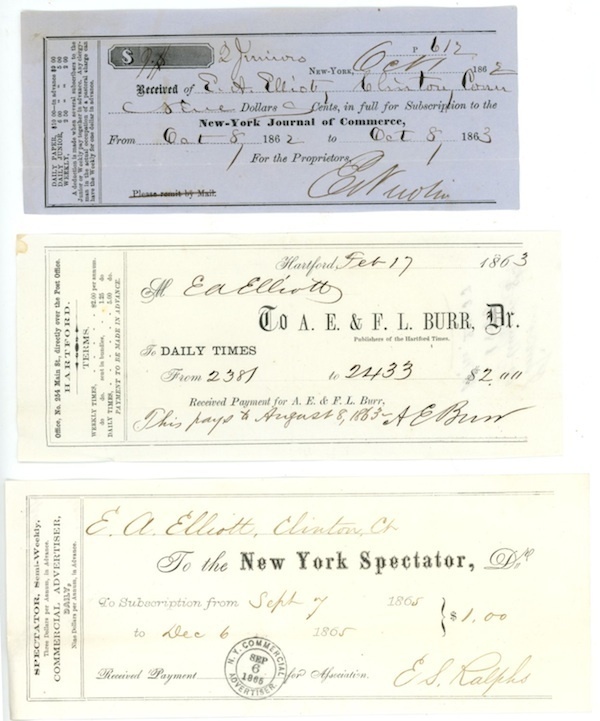 P 612
$ 2 Juniors
New-York, Oct 1862
Received of E. A. Elliott, Clinton, Conn
Dollars Cents, in full for Subscription to the
New-York Journal of Commerce,
From Oct 8, 1862 to Oct 8, 1863
For the Proprietors,
Please remit by Mail.
DAILY PAPER, $10 00—in advance $9 00
DAILY JUNIOR, 6 00 " " 5 00
WEEKLY, 2 00 " " 2 00
A deduction is made when several subscribers to the
Junior or Weekly pay together in advance. Any clergy-
man in the actual occupation of a pastoral charge can
have the Weekly for one dollar in advance.
Hartford, Feb 17 1863
M E A Elliott
To A. E. & F. L. BURR, Dr.
Publishers of the Hartford Times.
To DAILY TIMES
From 2381 to 2433 $2.00
Received Payment for A. E. & F. L. Burr,
This pays to August 8, 1863- A E Burr
Office, No. 254 Main St., directly over the Post Office.
HARTFORD.
TERMS.
WEEKLY TIMES, $2.00 per annum.
do do. sent in bundles, 1.25 do
DAILY TIMES, 5.00 do.
PAYMENT TO BE MADE IN ADVANCE.
E. A. Elliott, Clinton, Ct
To the New York Spectator, Dr.
To Subscription from Sept 7 1865
to Dec 6 1865 } $1.00
Received Payment for Association.
E. S. Ralphs
N.Y. COMMERCIAL
SEP
6
1865
ADVERTISER
SPECTATOR, Semi-Weekly,
Three Dollars per Annum, in Advance.
COMMERCIAL ADVERTISER,
DAILY,
Nine Dollars per Annum, in Advance.